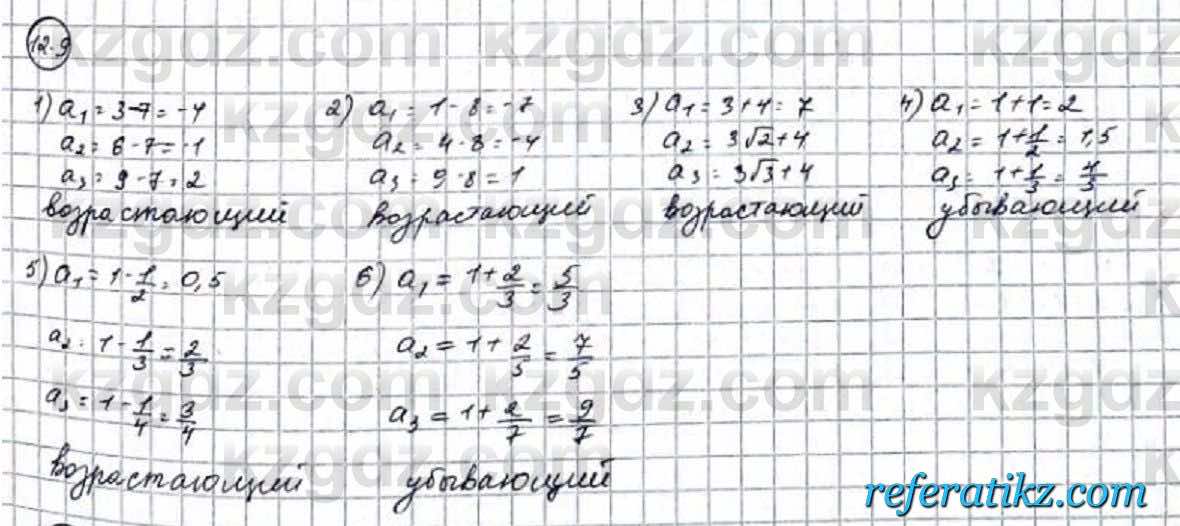 12.9
1) a₁ = 3-7 = -4
a₂ = 6-7 = -1
a₃ = 9-7 = 2
возрастающий
2) a₁ = 1-8 = -7
a₂ = 4-8 = -4
a₃ = 9-8 = 1
возрастающий
3) a₁ = 3+4 = 7
a₂ = 3√2+4
a₃ = 3√3+4
возрастающий
4) a₁ = 1+1 = 2
a₂ = 1+1/2 = 1,5
a₃ = 1+1/3 = 4/3
убывающий
5) a₁ = 1-1/2 = 0,5
a₂ = 1-1/3 = 2/3
a₃ = 1-1/4 = 3/4
возрастающий
6) a₁ = 1+2/3 = 5/3
a₂ = 1+2/5 = 7/5
a₃ = 1+2/7 = 9/7
убывающий
kzgdz.com
referatikz.com